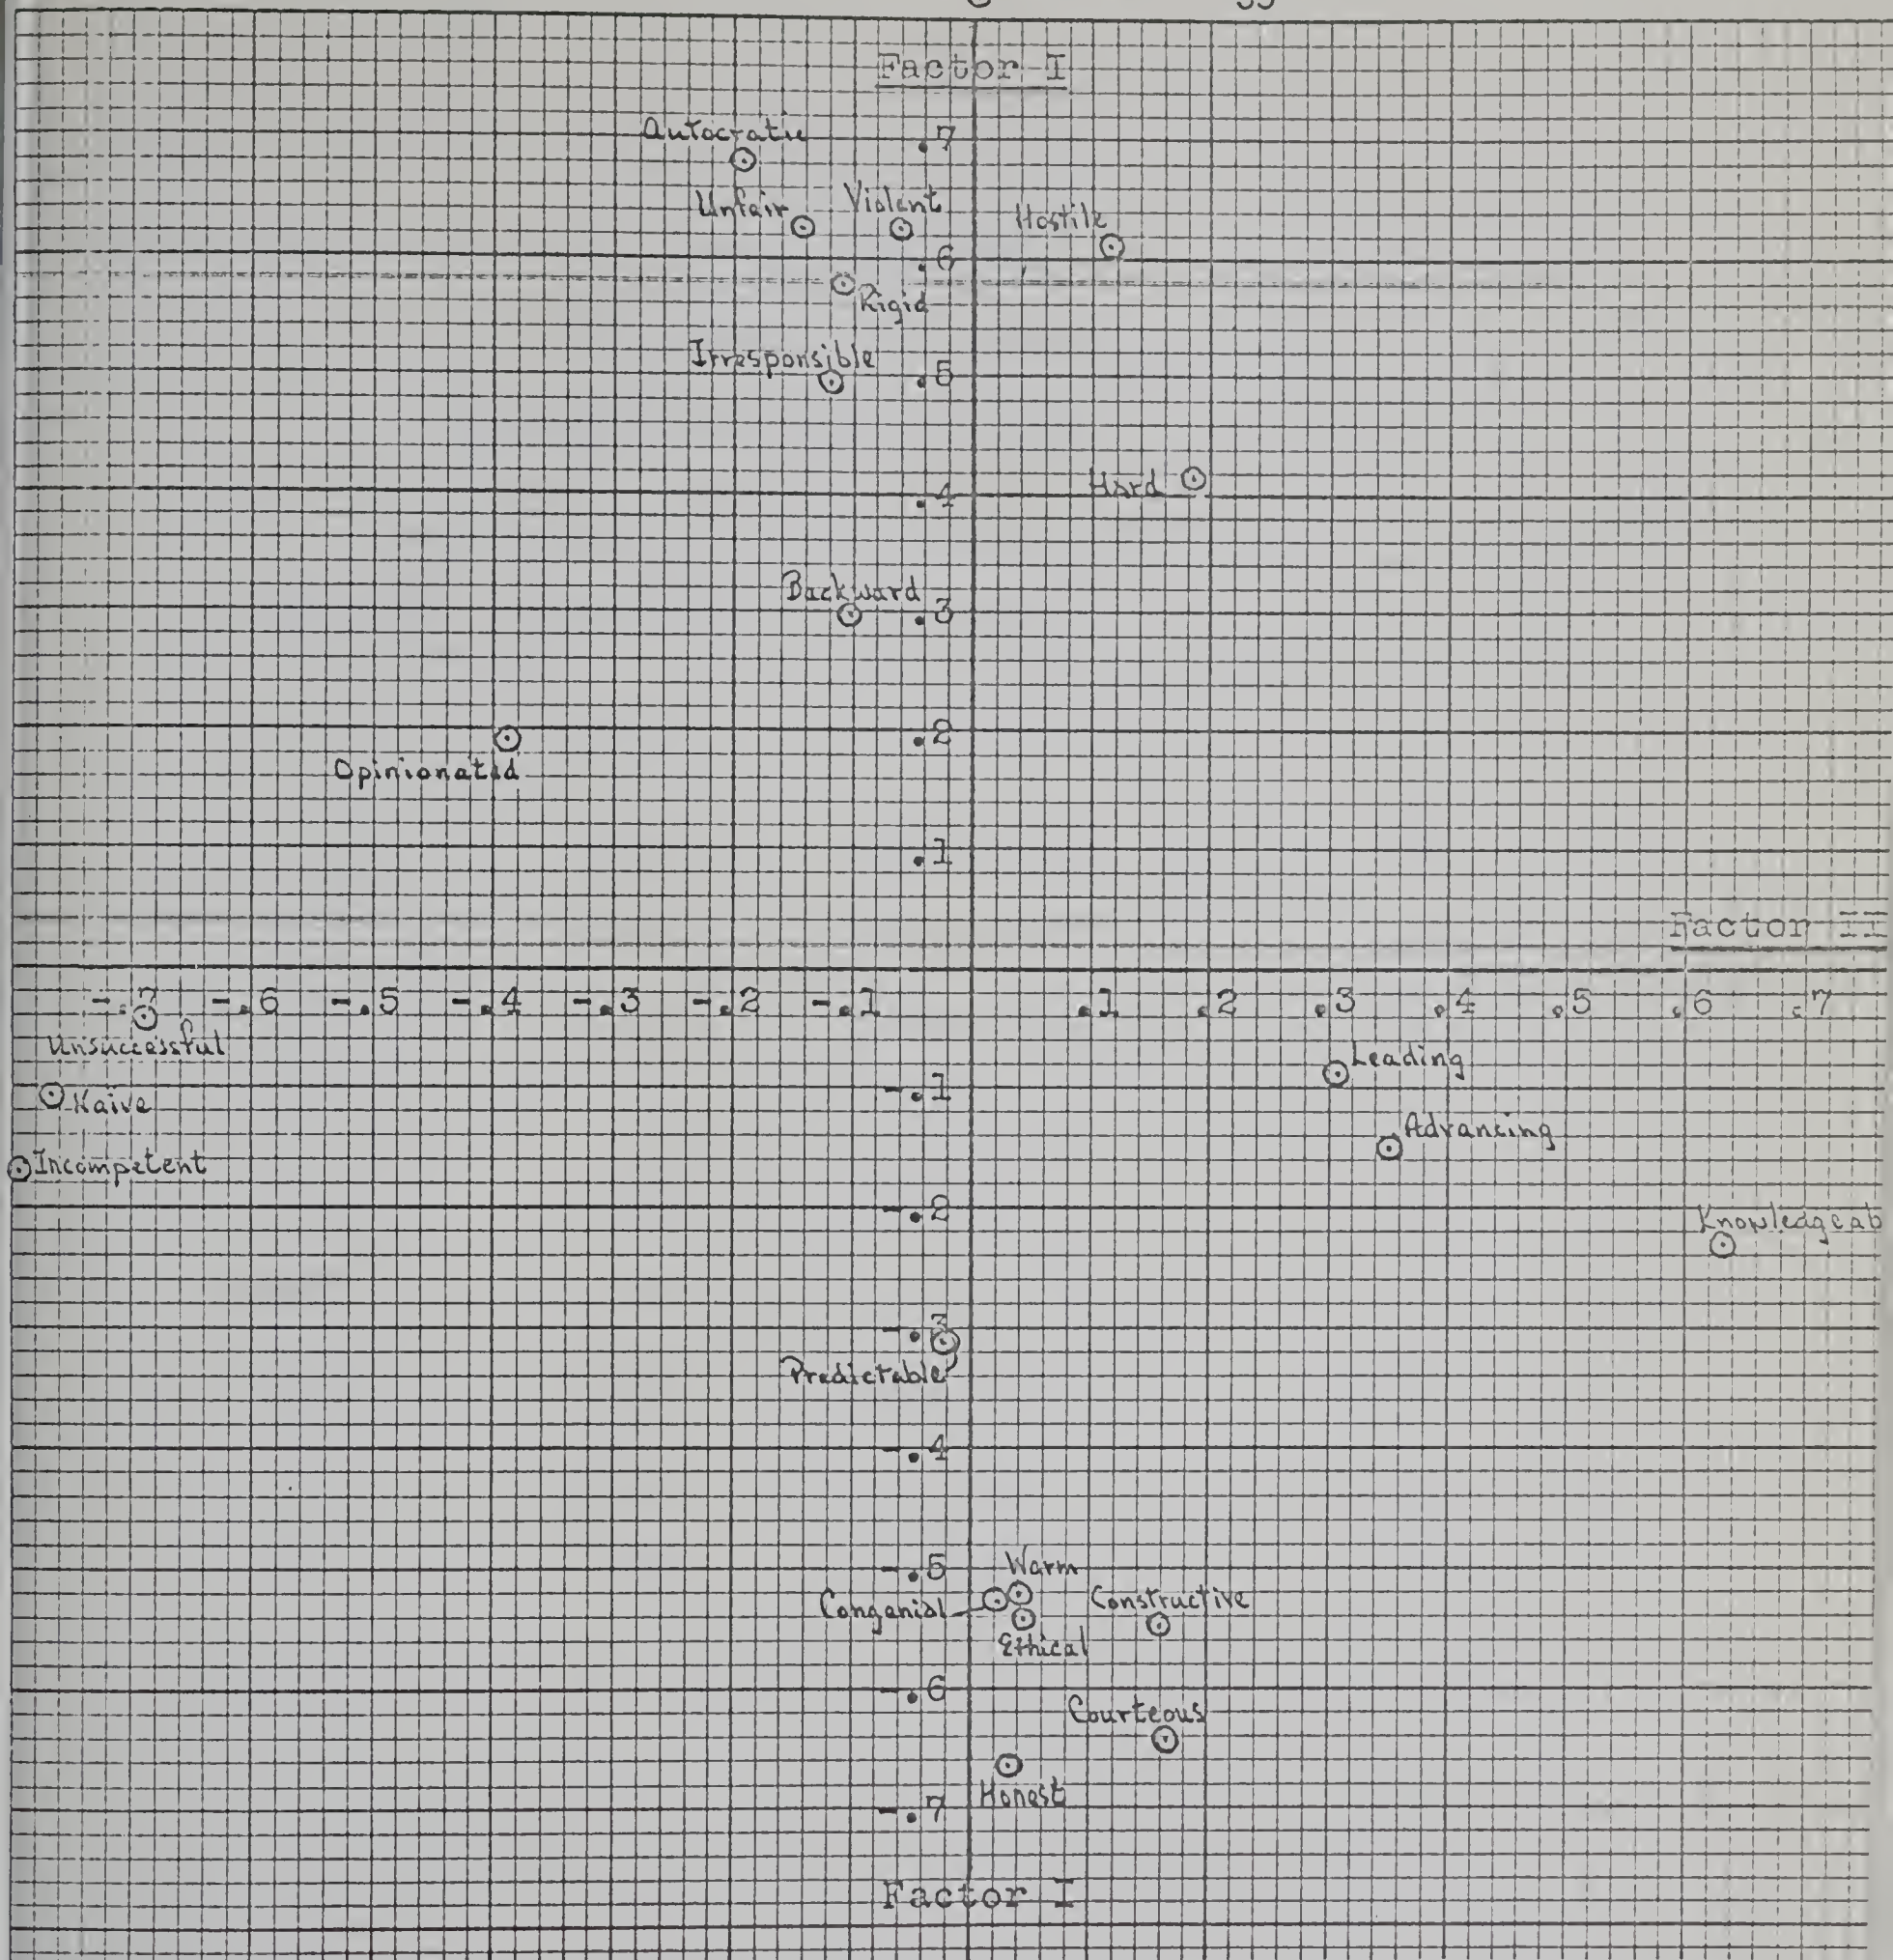 Factor I
Autocratic
.7
Unfair
Violent
Hostile
.6
Rigid
Irresponsible
.5
Hard
.4
Backward
.3
.2
Opinionated
.1
Factor II
-.7 -.6 -.5 -.4 -.3 -.2 -.1 .1 .2 .3 .4 .5 .6 .7
Unsuccessful
Leading
-.1
Naive
Advancing
Incompetent
-.2
Knowledgeab
-.3
Predictable
-.4
-.5
Warm
Congenial
Constructive
Ethical
-.6
Courteous
Honest
-.7
Factor I